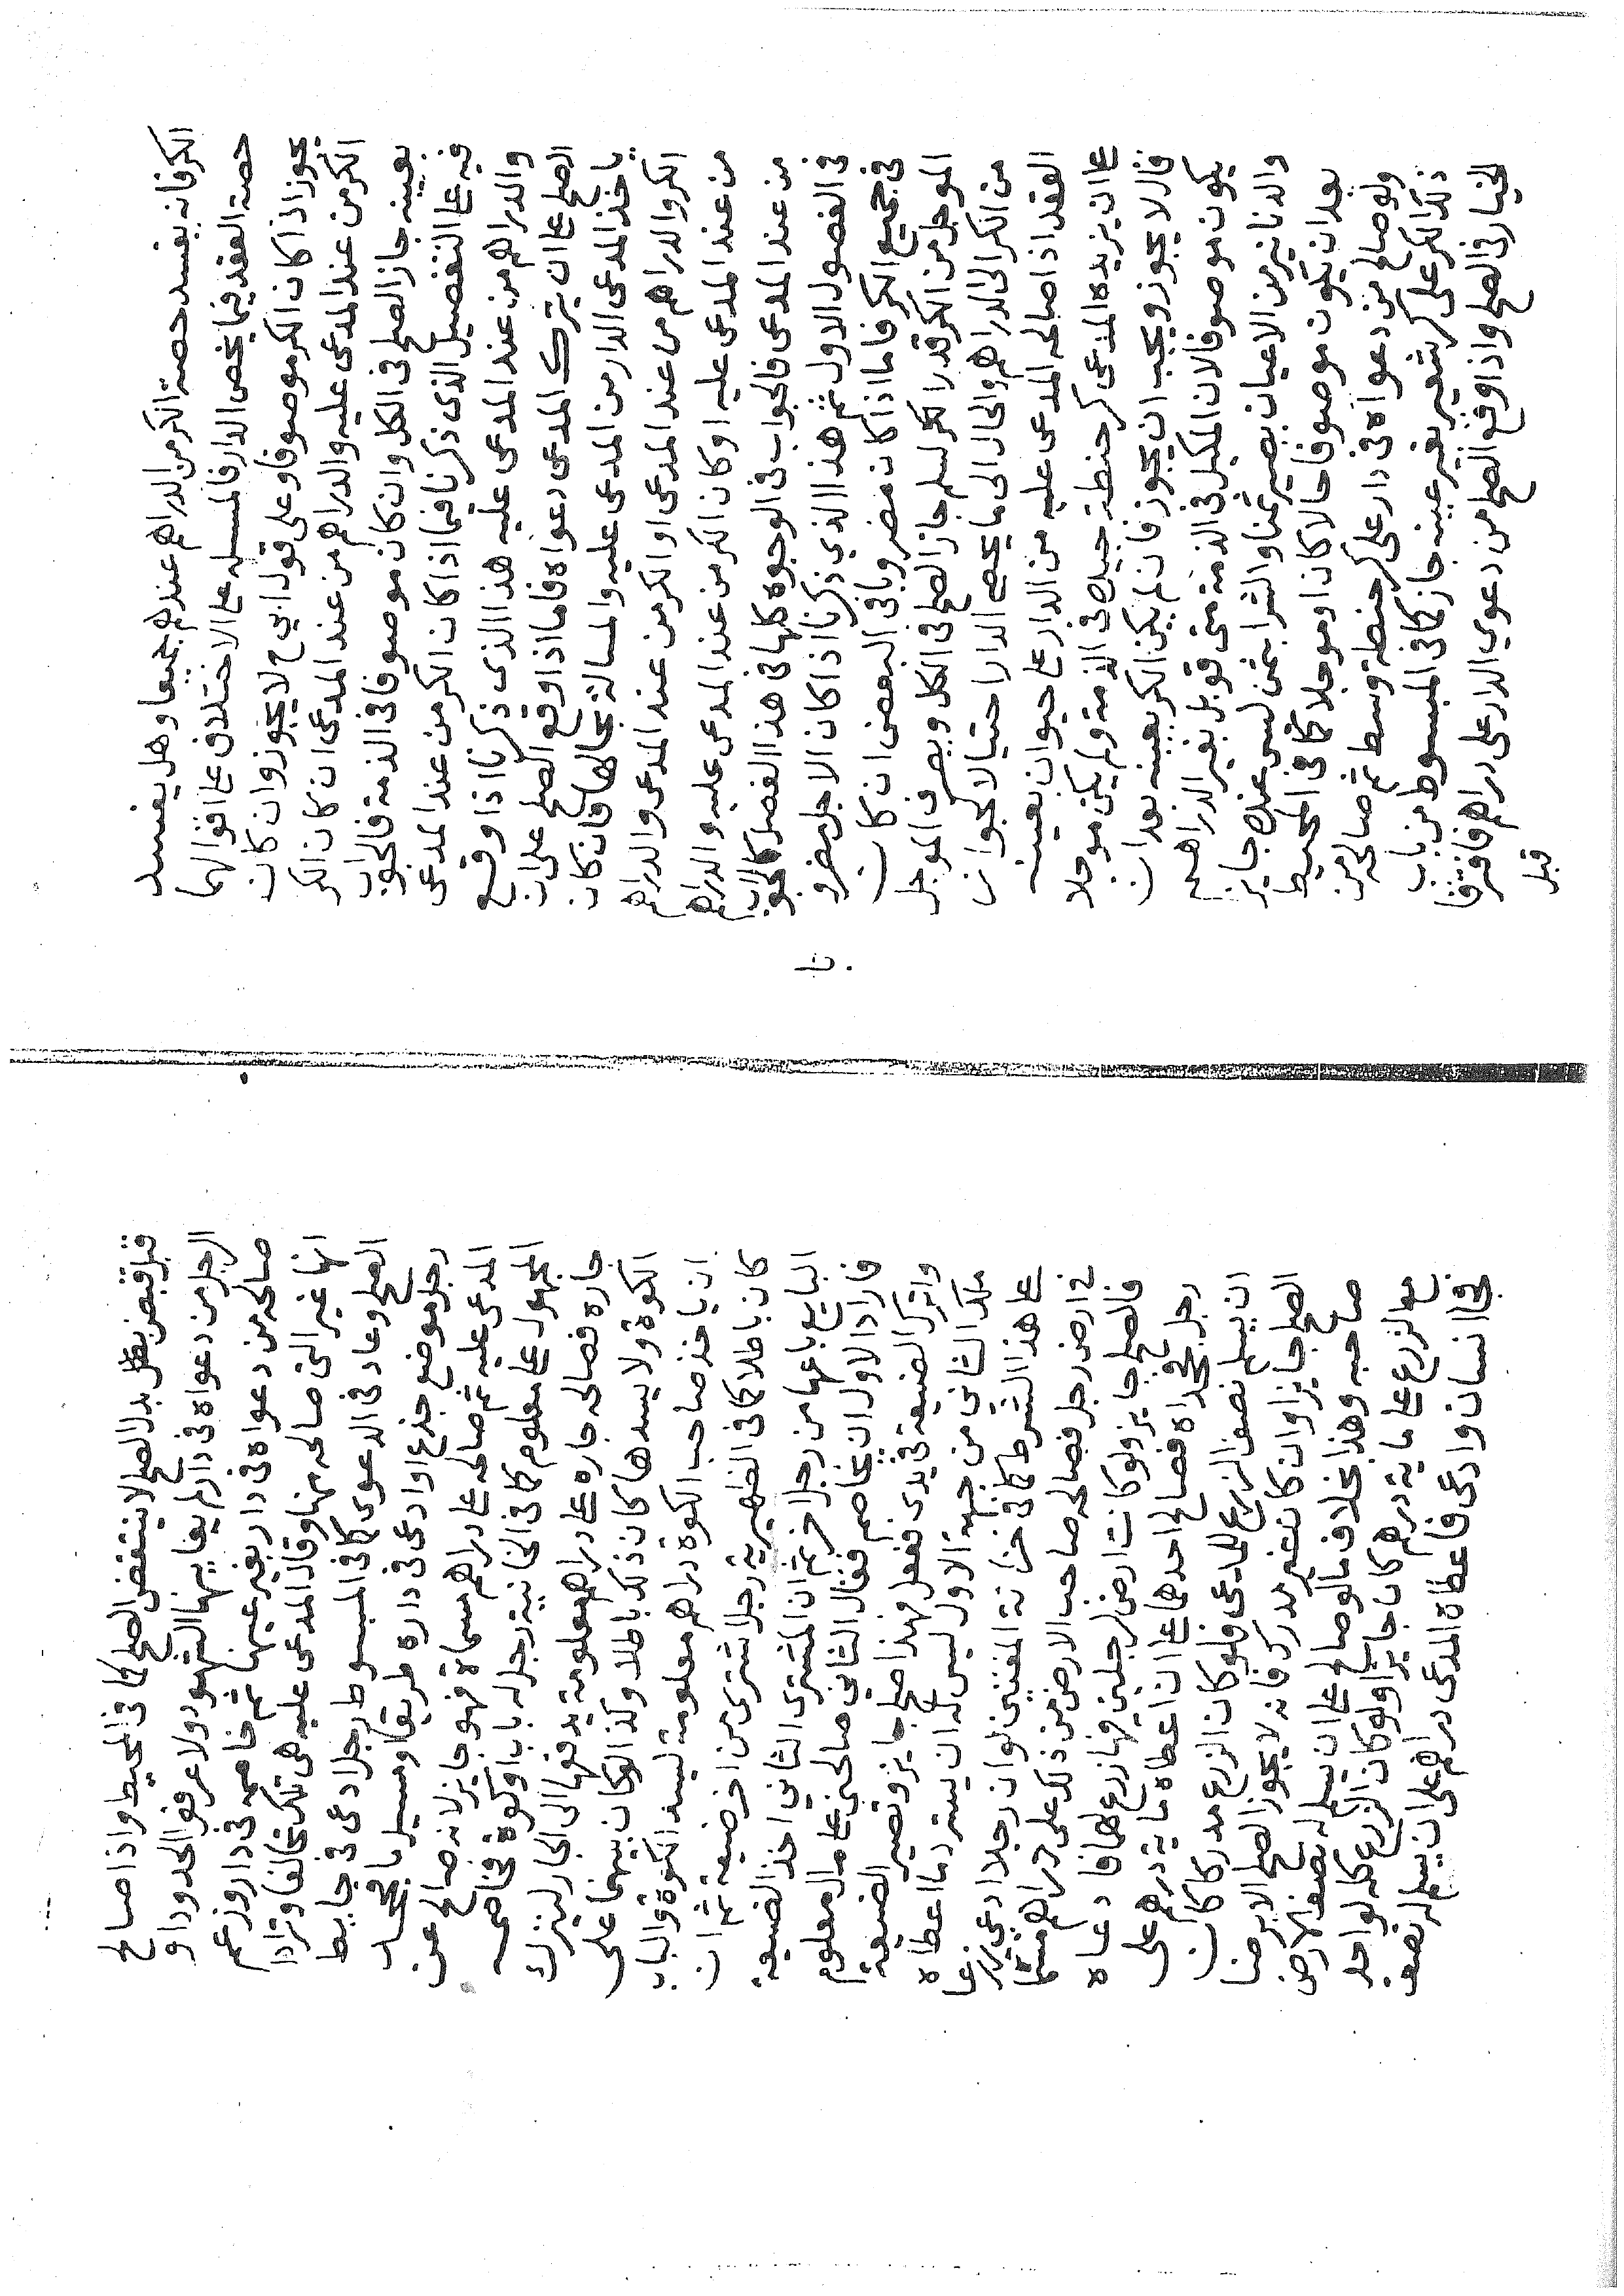 الكر فانه يفسد حصة الكر من الدراهم عندهم جميعا وهل يفسد
حصة العقد فيما يخص الدار فالمسله على الاختلاف على اقوالهما
يجوز اذا كان الكر موصوفا وعلى قول ابي ح لا يجوز وان كان
الكر من عند المدعى عليه والدراهم من عند المدعى ان كان الكر
بعينه جاز الصلح فى الكل وان كان موصوفا فى الذمة فالجواب
فيه على التفصيل الذى ذكرنا فيما اذا كان الكر من عند المدعى
والدراهم من عند المدعى عليه هذا الذى ذكرنا اذا وقع
الصلح على ان يترك المدعى دعواه فاما اذا وقع الصلح على ان
ياخذ المدعى الدار من المدعى عليه والمسالة بحالها فان كان
الكر والدراهم من عند المدعى او الكر من عند المدعى والدراهم
من عند المدعى عليه او كان الكر من عند المدعى عليه والدراهم
من عند المدعى فالجواب فى الوجوه كلها فى هذا الفصل كالجواب
فى الفصول الاول ثم هذا الذي ذكرنا اذا كان الاجل مضرو
فى جميع الكر فاما اذا كان مضروبا فى البعض ان كان
الموجل من الكر قدر الكر لسلم جاز الصلح فى الكل ويصرف الموجل
من الكر الى الدراهم والحال الى ما يخص الدار احتيالا للجواز
العقد اذا صالحه المدعى عليه من الدار على حيوان بعينه
على ان يزيده المدعى كر حنطة جيدة فى الذمة ولم يكن موجلا
قال لا يجوز ويجب ان يجوز فان لم يكن الكر بعينه بعد ان
يكون موصوفا لان المكيل فى الذمة متى قوبل بغير الدراهم
والدنانير من الاعيان يصير ثمنا والشرا بثمن ليس عنده جايز
بعد ان يكون موصوفا حالا كان او موجلا كما فى المحيط
ولو صالح من دعواه فى دار على كر حنطة وسط ثم صالحه من
ذلك الكر على كر شعير بغير عينه جاز كما فى المبسوط من باب
الخيار فى الصلح واذا وقع الصلح من دعوي الدار على دراهم فافترقا
قبل
قبل قبض بدل الصلح لا ينتقض الصلح كما فى المحيط واذا صالح
الرجل من دعواه فى دار لم يعاينها الشهود ولا عرفوا الحدود او
صالحه من دعواه فى دار بغير عينها ثم خاصمه فى دار وزعم
انها غير التى صالحه عنها وقال المدعى عليه هى تلك تحالفا وترادا
الصلح وعاد فى الدعوى كما فى المبسوط رجل ادعى فى حايط
رجل موضع جذع او ادعى فى داره طريقا او مسيل ما فجحد
المدعى عليه ثم صالحه على دراهم مسماة فهو جايز لانه صالح عن
المجهول على معلوم كما فى الخانية رجل له باب او كوة فخاصمه
جاره فصالحه جاره على دراهم معلومة يدفعها الى الجار ليترك
الكوة ولا يسدها كان ذلك باطلا وكذا لو كان بينهما على
ان ياخذ صاحب الكوة دراهم معلومة ليسد الكوة والباب
كان باطلا كما فى الظهيرية رجل اشترى من اخر ضيعة ثم ان
البايع باعها من رجل اخر ثم ان المشترى الثاني اخذ الضيعة
فاراد الاول ان يخاصم فقال الثانى صالحنى على مال معلوم
واترك الضيعة فى يدى ففعل فهذا صلح جايز وتصير الضيعة
ملك الثانى من جهة الاول ليس له ان يسترد ما اعطاه
على هذا الشرط كما فى خزانة المفتيين لو ان رجلا ادعى زرعا
فى ارض رجل فصالحه صاحب الارض من ذلك على دراهم مسما
فالصلح جايز ولو كانت ارض لرجلين فيها زرع لهما فادعاه
رجل فجحداه فصالح احدهما على ان اعطاه ماية درهم على
ان يسلم نصف الزرع للمدعى فلو كان الزرع مدركا كان
الصلح جايزا وان كان غير مدرك فانه لا يجوز الصلح الا برضا
صاحبه وهذا بخلاف ما لو صالح على ان يسلم له نصف الارض
مع الزرع على ماية درهم كان جايزا ولو كان الزرع كله لواحد
فجا انسان وادعى فاعطاه المدعى دراهم على ان يسلم له نصف